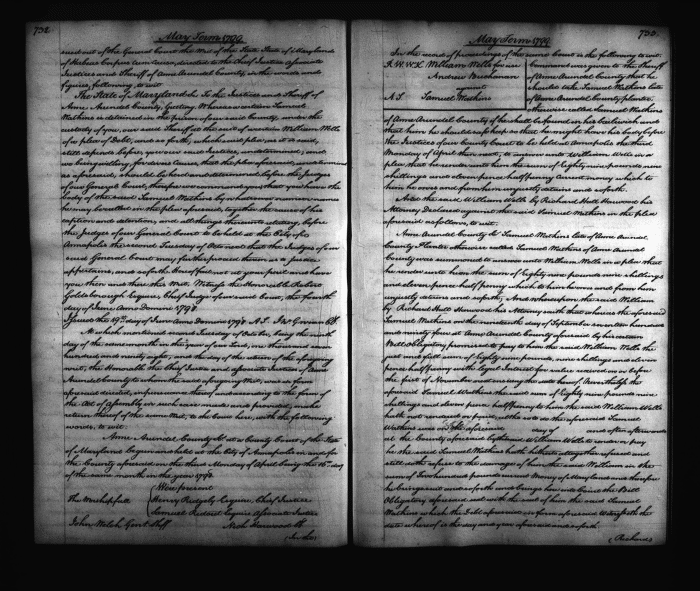 732
May Term 1799
sued out of the General Court the Writ of the State of Maryland
of Habeas Corpus cum causa, directed to the Chief Justice Associate
Justices and Sheriff of Anne Arundel County, in the words and
figures, following, to wit
The State of Maryland Sc. To the Justices and Sheriff of
Anne Arundel County, Greeting. Whereas a certain Samuel
Watkins is detained in the prison of our said County, under the
custody of you, our said Sheriff at the suit of a certain William Wells
of a plea of Debt, and so forth, which said plea, as it is said,
still depends before you our said Justices, undetermined, and
we being willing, for divers causes, that the plea aforesaid, undetermined
as aforesaid, should be heard and determined before the Judges
of our General Court, therefore we command you, that you have the
body of the said Samuel Watkins by whatsoever name or names
he may be called in the plea aforesaid, together the cause of his
caption and detention, and all things thereunto relating, before
the Judges of our General Court to be held at the City of
Annapolis the second Tuesday of October next that the Judges of our
said General Court may further proceed thereon as to justice
appertains, and so forth. Hereof fail not at your peril and have
you then and there this Writ. Witness the Honorable Robert
Goldsborough Esquire, Chief Judge of our said Court, the fourth
day of June Anno Domini 1798
Issued the 19th day of June Anno Domini 1798 A.S. Jno Gwinn Clk
At which mentioned second Tuesday of October, being the ninth
day of the same month in the year of our Lord, one thousand seven
hundred and ninety eight, and the day of the return of the aforegoing
writ, the Honorable the Chief Justice and Associate Justices of Anne
Arundel County to whom the said aforegoing Writ, was in form
aforesaid directed, in pursuance thereof and according to the form of
the Act of Assembly in such case made and provided, make
return thereof of the same Writ, to the Court here, with the following
words, to wit:
Anne Arundel County Sc at a County Court of the State
of Maryland begun and held at the City of Annapolis in and for
the County aforesaid on the third Monday of April being the 16th day
of the same month in the year 1798
Were present
The Worshipfull
Henry Ridgely Esquire, Chief Justice
Samuel Esquire Associate Justice
John Welch Gent Shff
Nich Harwood Clk
(In the)
733
May Term 1799
In the record of proceedings of the same Court is the following to wit:
William Wells for use
Andrew Buchanan
against
A S Samuel Watkins
Command was given to the Sheriff
of Anne Arundel County that he
should take Samuel Watkins late
of Anne Arundel County planter
otherwise called Samuel Watkins
of Anne Arundel County if he shall be found in his bailiwick and
that him he should safe keep so that he might have his body before
the Justices of our County Court to be held at Annapolis the third
Monday of April then next, to answer unto William Wells in a
plea that he render unto him the sum of Eighty nine pounds nine
shillings and eleven pence half penny current money which to
him he owes and from him unjustly detains and so forth.
And the said William Wells by Richard Hall Harwood his
Attorney Declares against the said Samuel Watkins in the plea
aforesaid as follows, to wit.
Anne Arundel County Sc Samuel Watkins late of Anne Arundel
County Planter otherwise called Samuel Watkins of Anne Arundel
County was summoned to answer unto William Wells in a plea that
he render unto him the sum of Eighty nine pounds nine shillings
and eleven pence half penny which to him he owes and from him
unjustly detains and so forth, And whereupon the said William
by Richard Hall Harwood his Attorney saith that whereas the aforesaid
Samuel Watkins on the nineteenth day of September seventeen hundred
and ninety four at Anne Arundel County aforesaid by his certain
Bill Obligatory promised to pay to him the said William Wells the
just and full sum of eighty nine pounds nine shillings and eleven
pence half penny with legal Interest for value received on or before
the first of November next ensuing the date hereof. Nevertheless the
aforesaid Samuel Watkins the said sum of Eighty nine pounds nine
shillings and eleven pence half penny to him the said William Wells
hath not rendered or paid, and tho' so as the aforesaid Samuel
Watkins was on said aforesaid day of and often afterwards
at the County aforesaid by the said William Wells to render or pay
he the said Samuel Watkins hath hitherto altogether refused and
still doth refuse to the damage of him the said William in the
sum of Two hundred pounds current Money of Maryland and therefore
he brings suit and so forth and brings here into Court the Bill
Obligatory aforesaid and with the seal of him the said Samuel
Watkins which the Debt aforesaid in form aforesaid Witnesseth the
date whereof is the day and year aforesaid and so forth
(Richard)